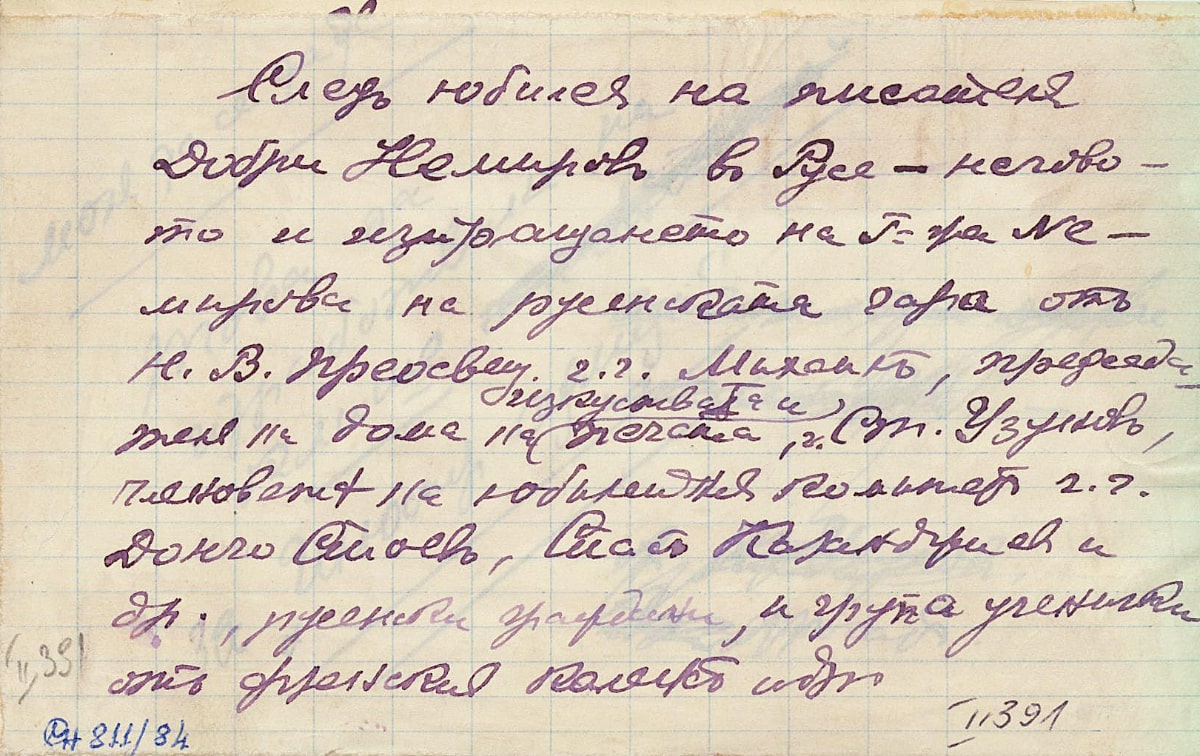 Следъ юбилея на писателя
Добри Немировъ въ Русе – негово-
то и изпращането на Г-жа Не-
мирова на русенската гара отъ
Н. В. Преосвещ. г.г. Михаилъ, председа-
изкуствата и
теля на дома на печата, г. Ст. Узуновъ,
членоветѣ на юбилейния комитетъ г.г.
Дончо Стоевъ, Статъ и
др., русенски граждани, и група ученички
отъ френския колежъ и др.
II,391
РН 811/84
II 391